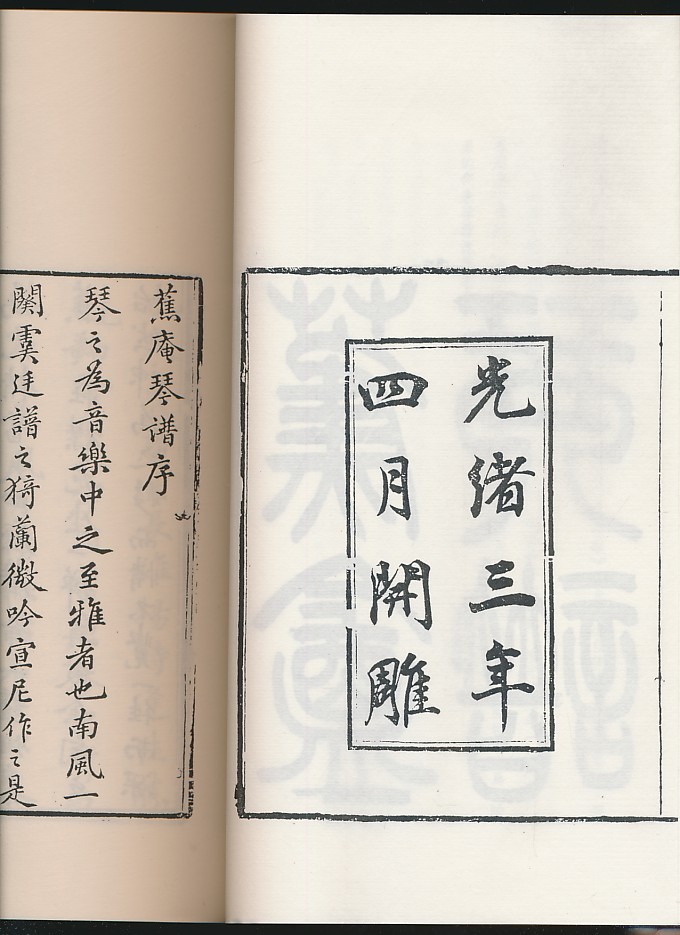 光緒三年
四月開雕
蕉庵琴譜序
琴之為音樂中之至雅者也南風一
闋虞廷譜之猗蘭微吟宣尼作之是